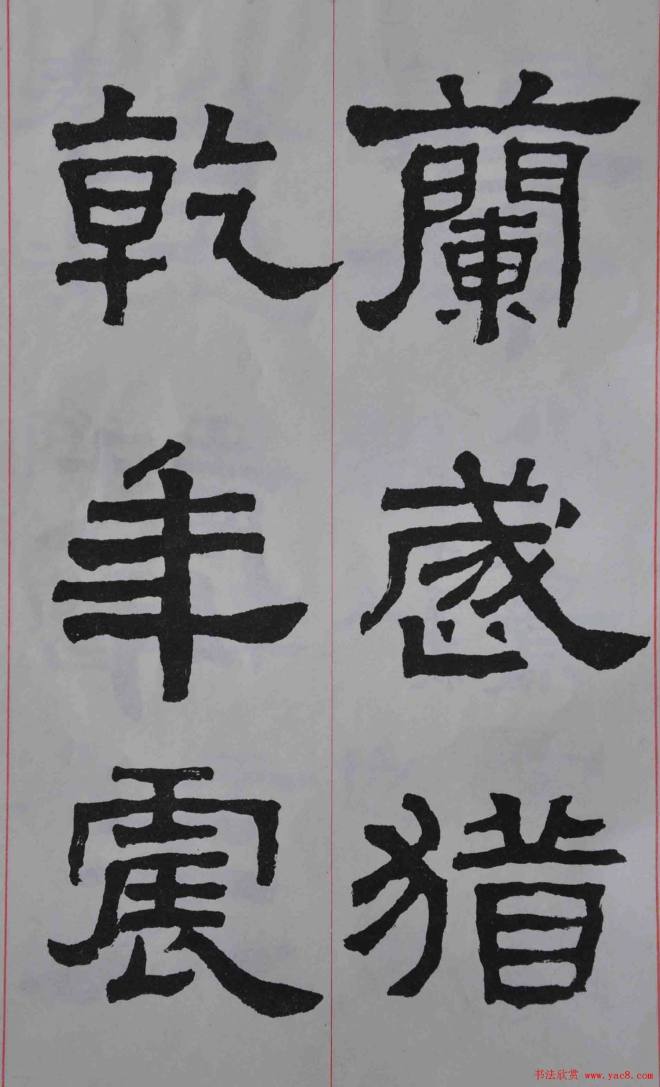 蘭
乾年震
书法欣赏 www.yac8.com